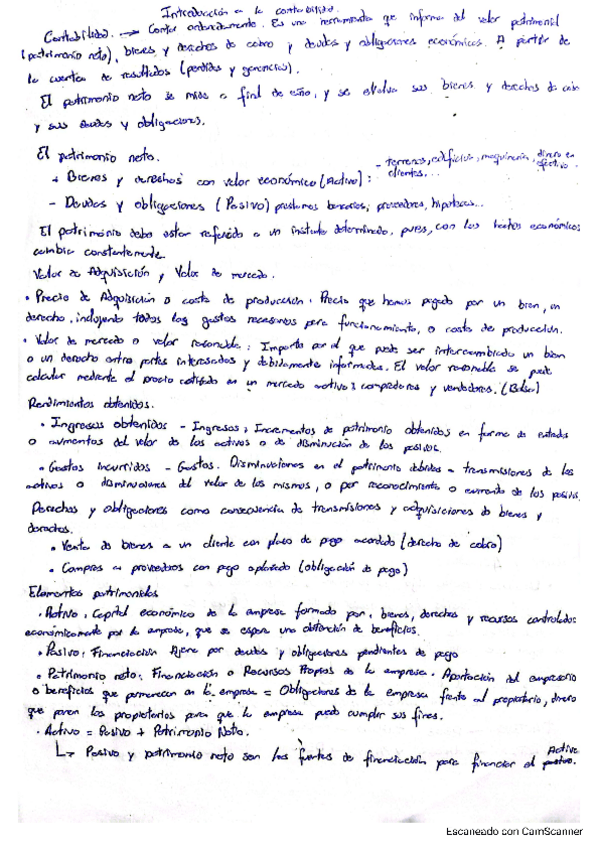 Introducción a la contabilidad.
Contabilidad. → Contar ordenadamente. Es una herramienta que informa del valor patrimonial
(patrimonio neto), bienes y derechos de cobro y deudas y obligaciones económicas. A partir de
la cuenta de resultados (perdidas y ganancias).
El patrimonio neto se mide a final de año, y se evalua sus bienes y derechos de cobro
y sus deudas y obligaciones.
El patrimonio neto.
+ Bienes y derechos con valor económico (Activo): - terrenos, edificios, maquinaria, dinero en efectivo.
clientes...
- Deudas y obligaciones (Pasivo) prestamos bancarios, proveedores, hipotecas...
El patrimonio debe estar referido a un instante determinado, pues, con los hechos económicos
cambia constantemente.
Valor de Adquisición y Valor de mercado.
• Precio de Adquisición o costa de produccion: Precio que hemos pagado por un bien, un
derecho, incluyendo todos los gastos necesarios para funcionamiento, o costa de produccion.
• Valor de mercado o valor razonable: Importe por el que puede ser intercambiado un bien
o un derecho entre partes interesadas y debidamente informadas. El valor razonable se puede
calcular mediante el precio cotizado en un mercado activo: compradores y vendedores. (Bolsa)
Rendimientos obtenidos.
• Ingresos obtenidos - Ingresos: Incrementos de patrimonio obtenidos en forma de entradas
o aumentos del valor de los activos o de disminución de los pasivos.
• Gastos incurridos - Gastos. Disminuciones en el patrimonio debidos a transmisiones de los
activos o disminuciones del valor de los mismos, o por reconocimiento o aumento de los pasivos.
Derechos y obligaciones como consecuencia de transmisiones y adquisiciones de bienes y
derechos.
• Venta de bienes a un cliente con plazo de pago acordado (derecho de cobro)
• Compras a proveedores con pago aplazado (obligación de pago)
Elementos patrimoniales
• Activo: Capital económico de la empresa formado por: bienes, derechos y recursos controlados
económicamente por la empresa, que se espera una obtención de beneficios.
• Pasivo: Financiación Ajena por deudas y obligaciones pendientes de pago
• Patrimonio neto: Financiación o Recursos Propios de la empresa. Aportación del empresario
o beneficios que permanecen en la empresa = Obligaciones de la empresa frente al propietario, dinero
que ponen los propietarios para que la empresa pueda cumplir sus fines.
• Activo = Pasivo + Patrimonio Neto.
↳ Pasivo y patrimonio neto son las fuentes de financiación para financiar el Activo.
Escaneado con CamScanner